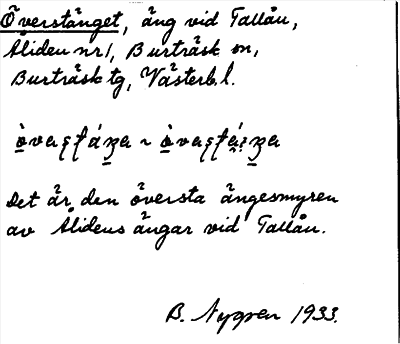 Överstänget, äng vid Tallån,
Åliden nr 1, Burträsk sn,
Burträsk tg, Västerb. l.
Det är den översta ängesmyren
av Ålidens ängar vid Tallån.
B. Nygren 1933.